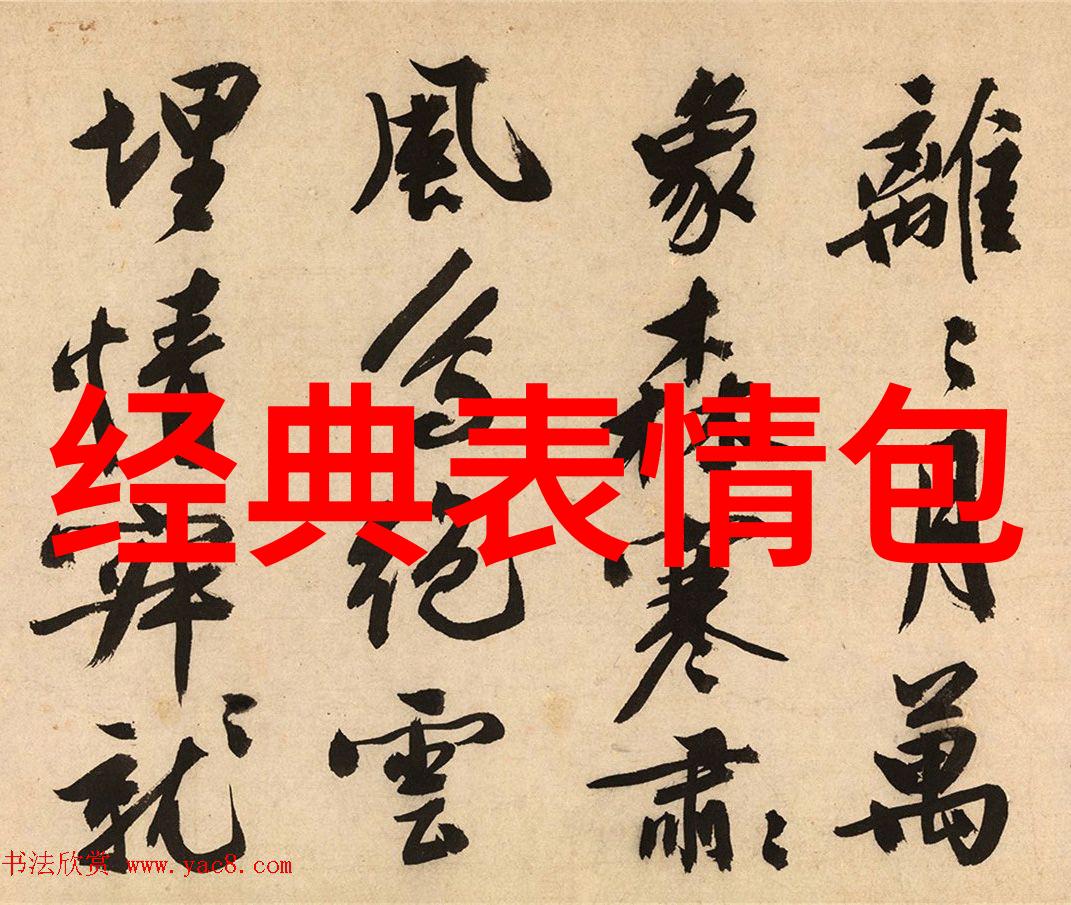 離〻月萬
象森寒肅〻
風雲
埋情就〻
经典表情包
书法欣赏 www.yac8.com